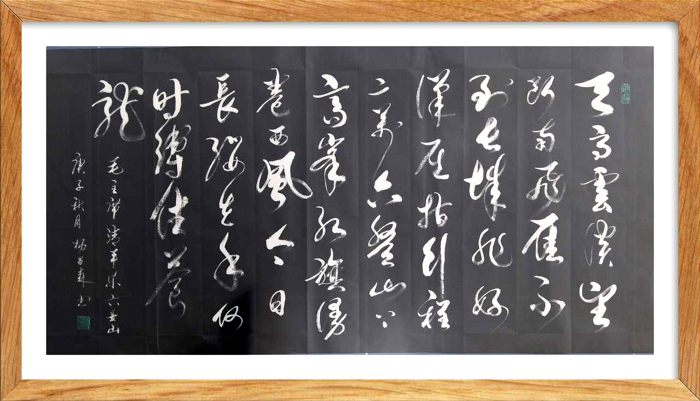 天高雲淡望
断南飛雁不
到長城非好
漢屈指行程
二萬六盤山上
高峯紅旗漫
卷西風今日
長纓在手何
时縛住蒼
龍
毛主席清平樂六盘山
庚子秋月楊书